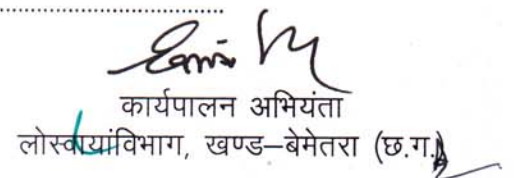 कार्यपालन अभियंता
लोस्वायांविभाग, खण्ड–बेमेतरा (छ.ग.)